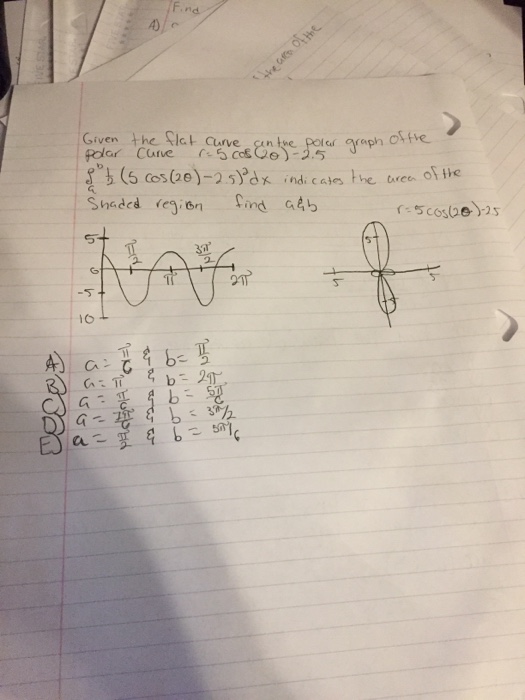 Find
A)
the area of the
Given the flat curve an the polar graph of the
polar curve r=5 cos(2θ)-2.5
∫ᵇₐ ½ (5 cos(2θ)-2.5)² dx indicates the area of the
Shaded region find a&b
r=5cos(2θ)-25
5 π/2 3π/2
0 π 2π
-5
10
5
5 5
A) a= π/6 & b= π/2
B) a= π & b= 2π
C) a= π/6 & b= 5π/6
D) a= & b= 3π/2
E) a= π/2 & b= 5π/6